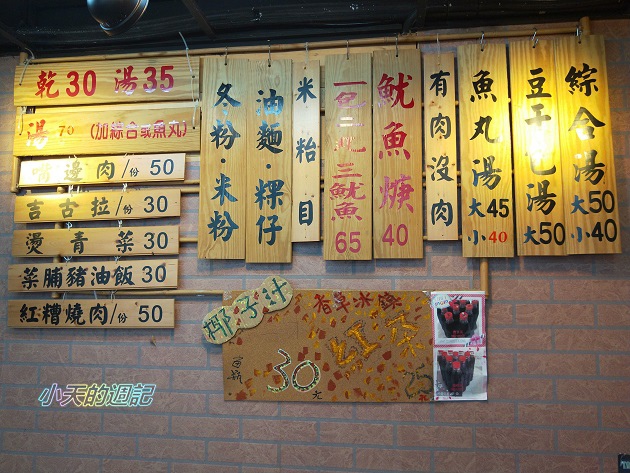 乾30 湯35
湯 70 (加綜合或魚丸)
嘴邊肉/份 50
吉古拉/份 30
燙青菜 30
菜脯豬油飯 30
紅糟燒肉/份 50
冬粉·米粉
油麵·粿仔
米粉目
三魷魚 65
魷魚焿 40
有肉沒肉
魚丸湯 大45 小40
豆干包湯 大50
綜合湯 大50 小40
椰子汁
香草冰鎮
紅茶
30
25
小天的週記